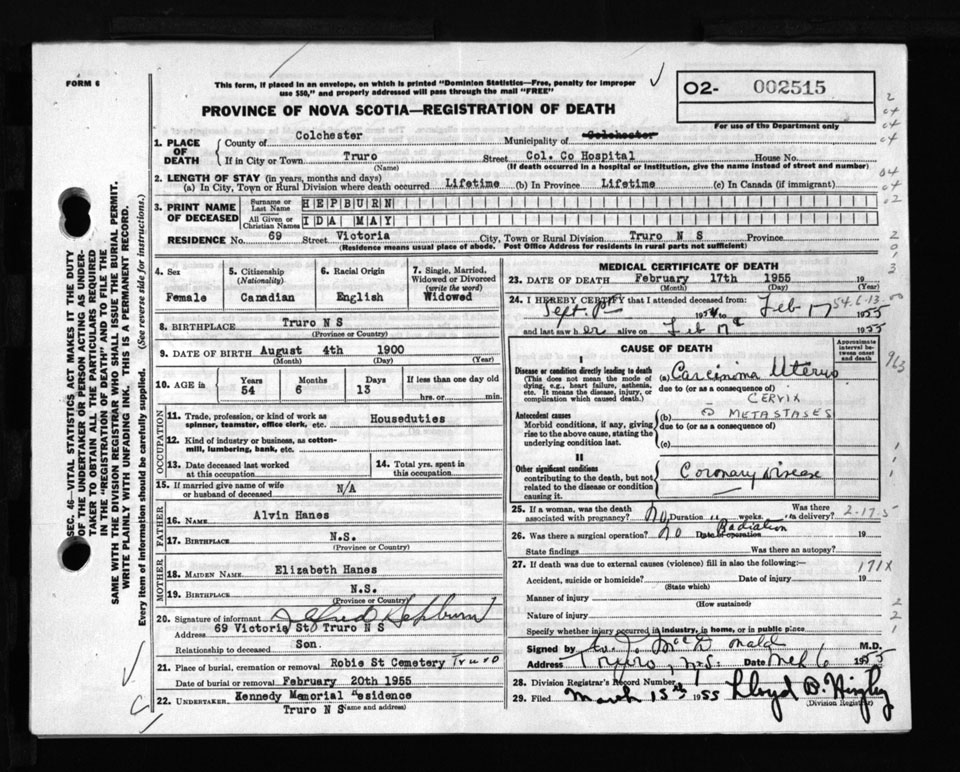 FORM 6
This form, if placed in an envelope, on which is printed "Dominion Statistics—Free, penalty for improper
use $50," and properly addressed will pass through the mail "FREE"
PROVINCE OF NOVA SCOTIA—REGISTRATION OF DEATH
O2- 002515
For use of the Department only
1. PLACE OF DEATH
County of Colchester Municipality of Colchester
If in City or Town Truro Street Col. Co Hospital House No.
(Name) (If death occurred in a hospital or institution, give the name instead of street and number)
2. LENGTH OF STAY (in years, months and days)
(a) In City, Town or Rural Division where death occurred Lifetime (b) In Province Lifetime (c) In Canada (if immigrant)
3. PRINT NAME OF DECEASED
Surname or Last Name HEPBURN
All Given or Christian Names IDA MAY
RESIDENCE No. 69 Street Victoria City, Town or Rural Division Truro N S Province
(Residence means usual place of abode. Post Office Address for residents in rural parts not sufficient)
4. Sex Female
5. Citizenship (Nationality) Canadian
6. Racial Origin English
7. Single, Married, Widowed or Divorced (write the word) Widowed
8. BIRTHPLACE Truro N S
(Province or Country)
9. DATE OF BIRTH August 4th 1900
(Month) (Day) (Year)
10. AGE in Years 54 Months 6 Days 13 If less than one day old hrs. or min.
OCCUPATION
11. Trade, profession, or kind of work as spinner, teamster, office clerk, etc. Houseduties
12. Kind of industry or business, as cotton-mill, lumbering, bank, etc.
13. Date deceased last worked at this occupation
14. Total yrs. spent in this occupation
15. If married give name of wife or husband of deceased N/A
FATHER
16. NAME Alvin Hanes
17. BIRTHPLACE N.S.
(Province or Country)
MOTHER
18. MAIDEN NAME Elizabeth Hanes
19. BIRTHPLACE N.S.
(Province or Country)
20. Signature of informant Hepburn
Address 69 Victoria St Truro N S
Relationship to deceased Son.
21. Place of burial, cremation or removal Robie St Cemetery Truro
Date of burial or removal February 20th 1955
22. UNDERTAKER Kennedy Memorial "esidence
Truro N S (Name and address)
MEDICAL CERTIFICATE OF DEATH
23. DATE OF DEATH February 17th 1955 19
(Month) (Day)
24. I HEREBY CERTIFY that I attended deceased from:
Sept. 1954 to Feb 17 1955
and last saw her alive on Feb 17 1955
54.6.13.
CAUSE OF DEATH
Approximate interval between onset and death
I
Disease or condition directly leading to death
(This does not mean the mode of dying, e.g., heart failure, asthenia, etc. It means the disease, injury, or complication which caused death.)
(a) Carcinoma Uterus
due to (or as a consequence of)
CERVIX
Antecedent causes
Morbid conditions, if any, giving rise to the above cause, stating the underlying condition last.
(b) METASTASES
due to (or as a consequence of)
(c)
II
Other significant conditions
contributing to the death, but not related to the disease or condition causing it.
Coronary Disease
25. If a woman, was the death associated with pregnancy? No Duration " weks. Was there " a delivery?
2-17-5
26. Was there a surgical operation? No Date of operation Radiation 19
State findings Was there an autopsy?
27. If death was due to external causes (violence) fill in also the following:—
171X
Accident, suicide or homicide? Date of injury 19
(State which)
Manner of injury
(How sustained)
Nature of injury
Specify whether injury occurred in industry, in home, or in public place
Signed by McDonald M.D.
Address Truro, N.S. Date Mch 6 1955
28. Division Registrar's Record Number
29. Filed March 15th 1955 Lloyd B.
(Division Registrar)
SEC. 46—VITAL STATISTICS ACT MAKES IT THE DUTY
OF THE UNDERTAKER OR PERSON ACTING AS UNDER-
TAKER TO OBTAIN ALL THE PARTICULARS REQUIRED
IN THE "REGISTRATION OF DEATH" AND TO FILE THE
SAME WITH THE DIVISION REGISTRAR WHO SHALL ISSUE THE BURIAL PERMIT.
WRITE PLAINLY WITH UNFADING INK. THIS IS A PERMANENT RECORD.
Every item of information should be carefully supplied. (See reverse side for instructions.)
963